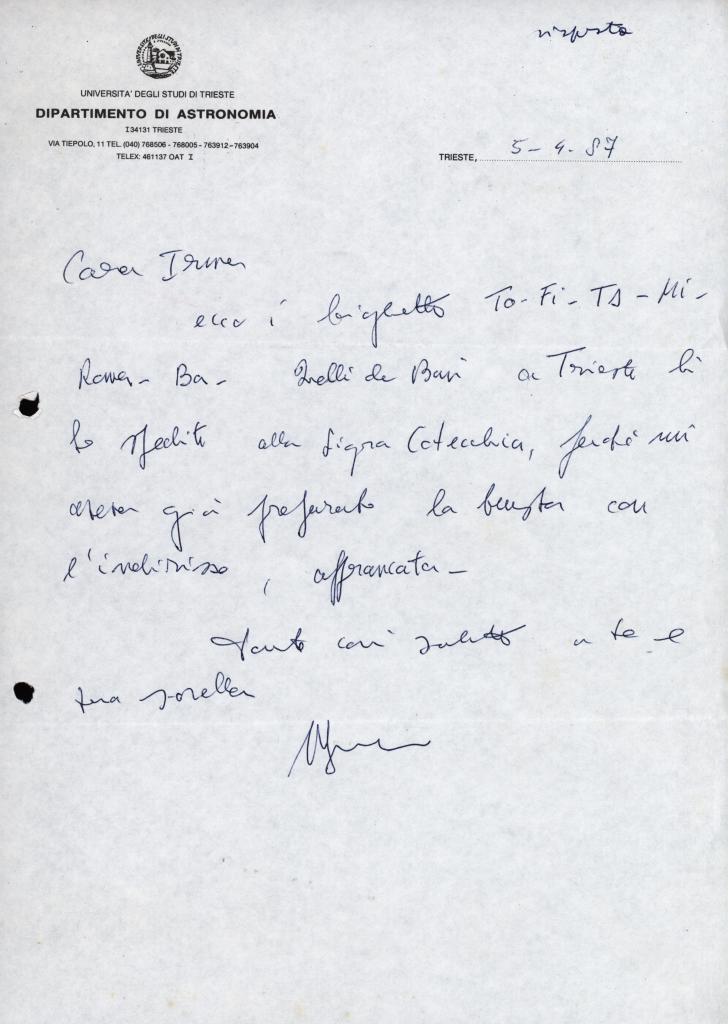 risposto
UNIVERSITA' DEGLI STUDI DI TRIESTE
DIPARTIMENTO DI ASTRONOMIA
I 34131 TRIESTE
VIA TIEPOLO, 11 TEL. (040) 768506 - 768005 - 763912 - 763904
TELEX: 461137 OAT I
TRIESTE, 5-4-87
Cara
ecco i biglietti To-Fi-TS-Mi-
Roma- Ba- Quelli da Bari a Trieste li
ho spediti alla Sigra Catecchia, perché mi
aveva già preparato la busta con
l'indirizzo, affrancata-
Tanti cari saluti a te e
tua sorella